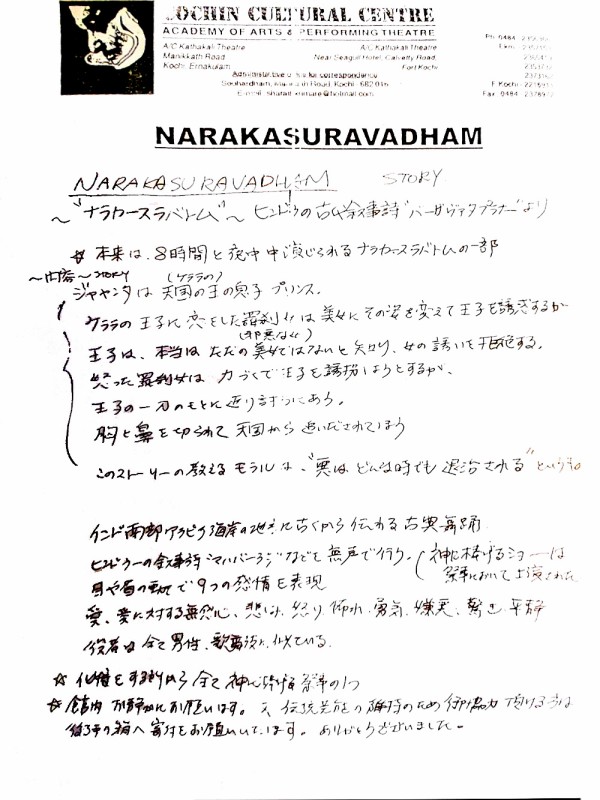 COCHIN CULTURAL CENTRE
ACADEMY OF ARTS & PERFORMING THEATRE
A/C Kathakali Theatre
Manikkath Road
Kochi, Ernakulam
A/C Kathakali Theatre
Near Seagull Hotel, Calvetty Road,
Fort Kochi
Administrative office for correspondence
NARAKASURAVADHAM
NARAKASURAVADHAM STORY
～"ナラカースラバトム"～ ヒンドゥの古い叙事詩 より
☆ 本来は、8時間と夜中中演じられるナラカースラバトムの一部
～内容～ STORY (ケララの)
ジャヤンタは天国の王の息子 プリンス.
ケララの王子に恋をした羅刹女は美女にその姿を変えて王子を誘惑するが
(邪悪な女)
王子は、本当はただの美女ではないと知り、女の誘いを拒絶する。
怒った羅刹女は力づくで王子を誘拐しようとするが、
王子の一刀のもとに返り討ちにあう。
胸と鼻を切られて天国から追いだされてしまう
このストーリーの教えるモラルは、"悪はどんな時でも退治される"というもの
インド南部アラビア海岸の地方に古くから伝わる古典舞踊
ヒンドゥーの叙事詩 なども無声で行う。(神に捧げるショーは
祭事において上演された
目や眉の動きで9つの感情を表現
愛、愛に対する無関心、悲しみ、怒り、怖れ、勇気、嫌悪、驚き、平静
役者は全て男性、歌舞伎に似ている.
☆ 化粧をする所から全て神に捧げる祭事の1つ
☆ 館内 お静かにお願いします。又、伝統芸能の維持のため御協力頂ける方は
後方の箱へ寄付をお願いいたします。ありがとうございました。